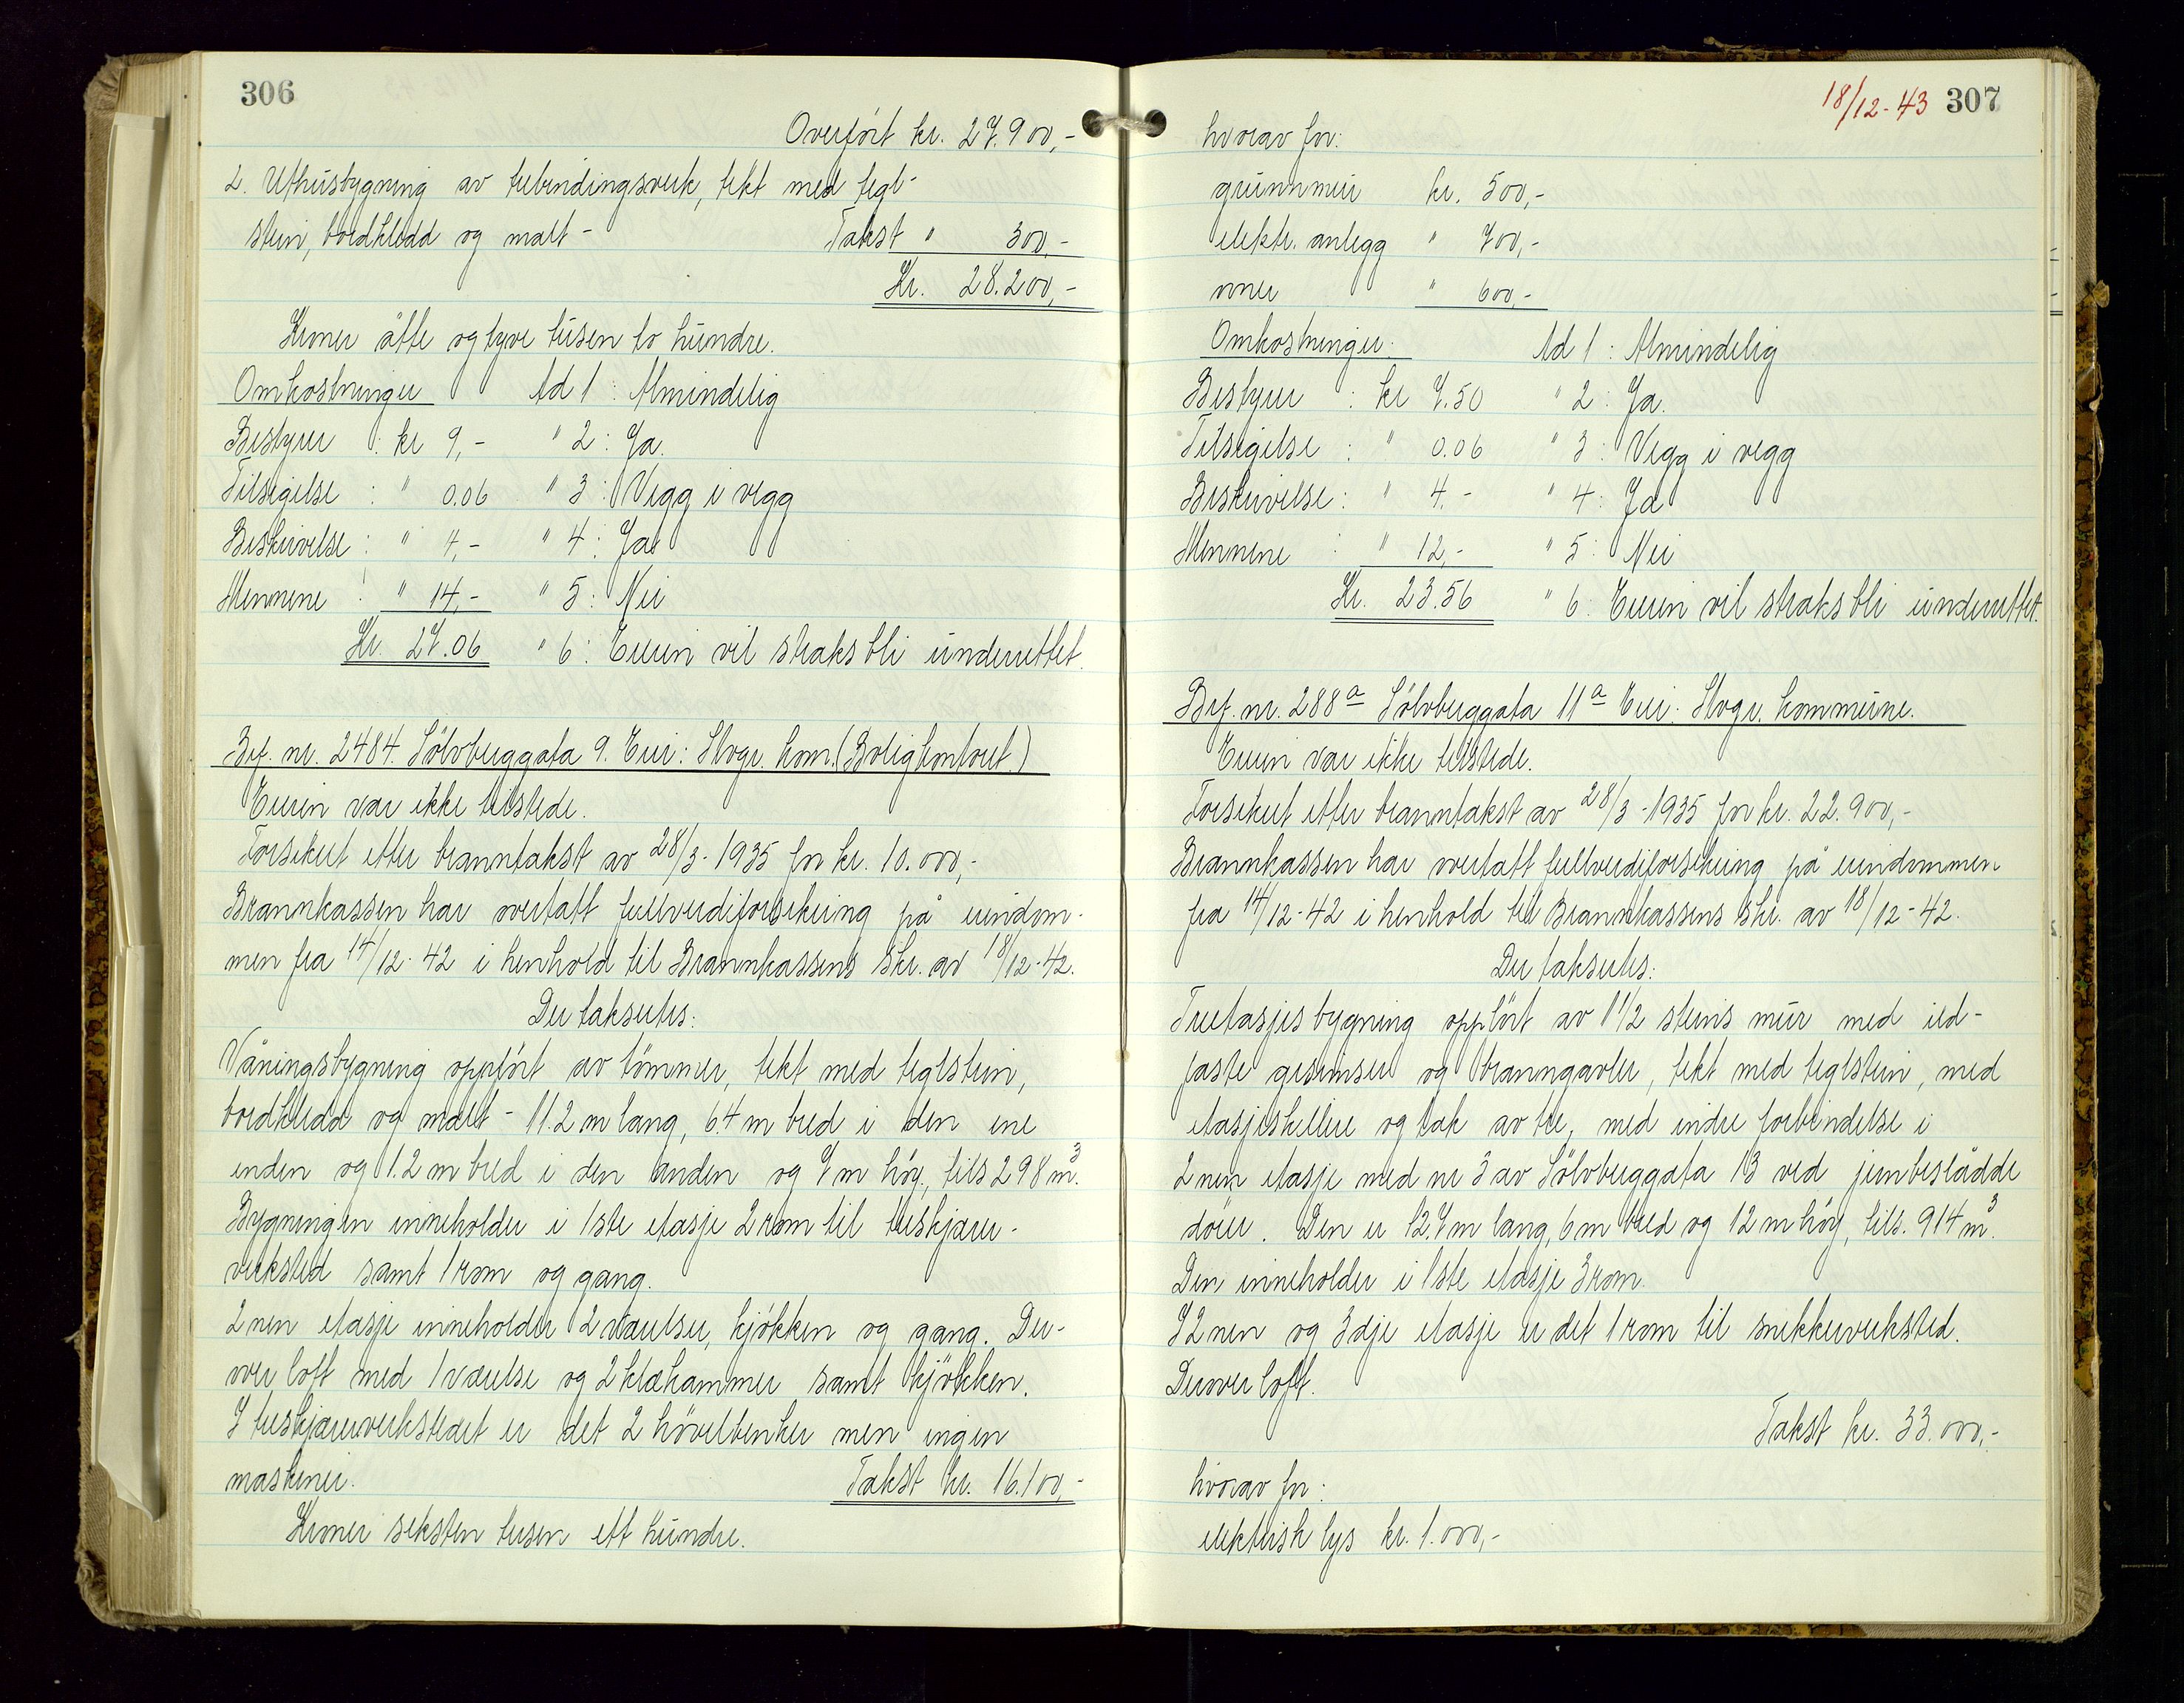 306
Overført kr. 27.900,-
2. Uthusbygning av trebindingsverk, tekt med tegl-
stein, bordkledd og malt - Takst " 300,-
Kr. 28.200,-
Kroner åtte og tyve tusen to hundre.
Omkostninger Ad 1 : Almindelig
Bestyrer : kr 9,- " 2 : Ja.
Tilsigelse : " 0.06 " 3 : Vegg i vegg
Beskrivelse : " 4,- " 4 : Ja
Mennene : " 14,- " 5 : Nei
Kr. 27.06 " 6 : Eieren vil straks bli underrettet.
Brf. nr. 2484. Sölvberggata 9. Eier: Stvgr. kom. (Boligkontoret)
Eieren var ikke tilstede.
Forsikret etter branntakst av 28/3-1935 for kr. 10.000,-
Brannkassen har overtatt fullverdiforsikring på eiendom-
men fra 14/12-42 i henhold til Brannkassens skr. av 18/12-42.
Der takseres:
Våningsbygning oppfört av tömmer, tekt med teglstein,
bordkledd og malt - 11.2 m lang, 6.4 m bred i den ene
enden og 1.2 m bred i den anden og 7 m höy, tils 298 m³.
Bygningen inneholder i 1ste etasje 2 rom til treskjærer-
verksted samt 1 rom og gang.
2nen etasje inneholder 2 værelser, kjökken og gang. Der-
over loft med 1 værelse og 2 klekammer samt kjökken.
I treskjærerverkstedet er det 2 hövelbenker men ingen
maskiner. Takst kr. 16.100,-
Kroner seksten tusen ett hundre.
18/12-43 307
hvorav for:
grunnmur kr. 500,-
elektr. anlegg " 700,-
ovner " 600,-
Omkostninger: Ad 1 : Almindelig
Bestyrer : kr 7.50 " 2 : Ja.
Tilsigelse : " 0.06 " 3 : Vegg i vegg
Beskrivelse : " 4,- " 4 : Ja
Mennene : " 12,- " 5 : Nei
Kr. 23.56 " 6 : Eieren vil straks bli underrettet.
Brf. nr. 288a Sölvberggata 11a Eier: Stvgr. kommune.
Eieren var ikke tilstede.
Forsikret etter branntakst av 28/3-1935 for kr. 22.900,-
Brannkassen har overtatt fullverdiforsikring på eiendommen
fra 14/12-42 i henhold til Brannkassens skr. av 18/12-42.
Der takseres:
Treetasjes bygning oppfört av 1 1/2 steins mur med ild-
faste gesimser og branngavler, tekt med teglstein, med
etasjeskillere og tak av tre, med indre forbindelse i
2nen etasje med nr 3 av Sölvberggata 13 ved jernbeslådde
dörer. Den er 12,7 m lang, 6 m bred og 12 m höy, tils. 914 m³.
Den inneholder i 1ste etasje 3 rom.
I 2nen og 3dje etasje er det 1 rom til snekkerverksted.
Derover loft.
Takst kr. 33.000,-
hvorav for:
elektrisk lys kr. 1.000,-